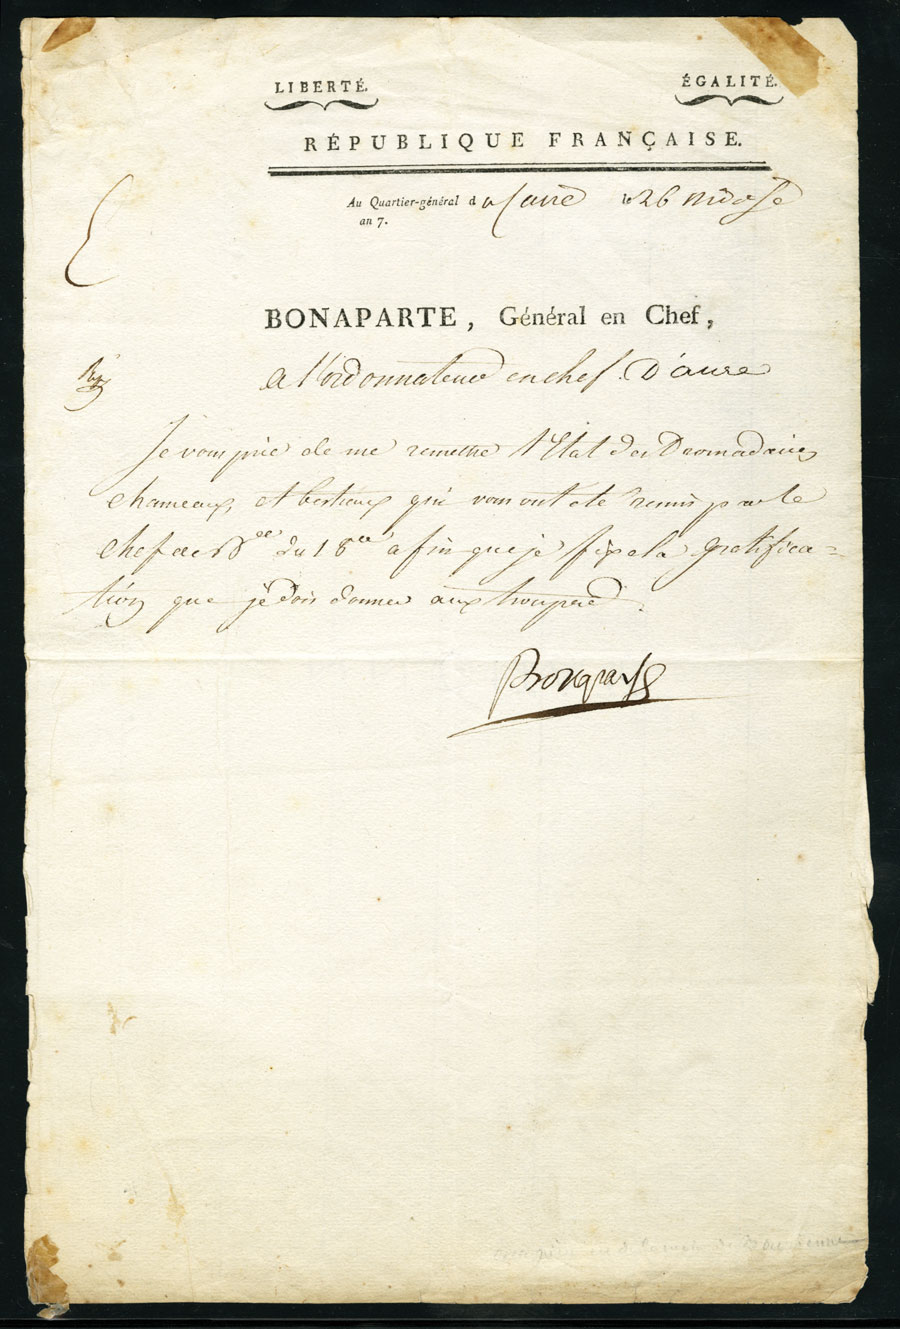 LIBERTÉ.
ÉGALITÉ.
RÉPUBLIQUE FRANÇAISE.
Au Quartier-général d u Caire le 26 nivose
an 7.
BONAPARTE, Général en Chef,
a l'ordonnateur en chef D'aure
Je vous prie de me remettre l'Etat des Dromadaires
chameaux, et bestiaux qui vous ont été remis par le
chef de Bde du 18e afin que je fixe la gratifica-
tion que je dois donner aux troupes.
Bonaparte